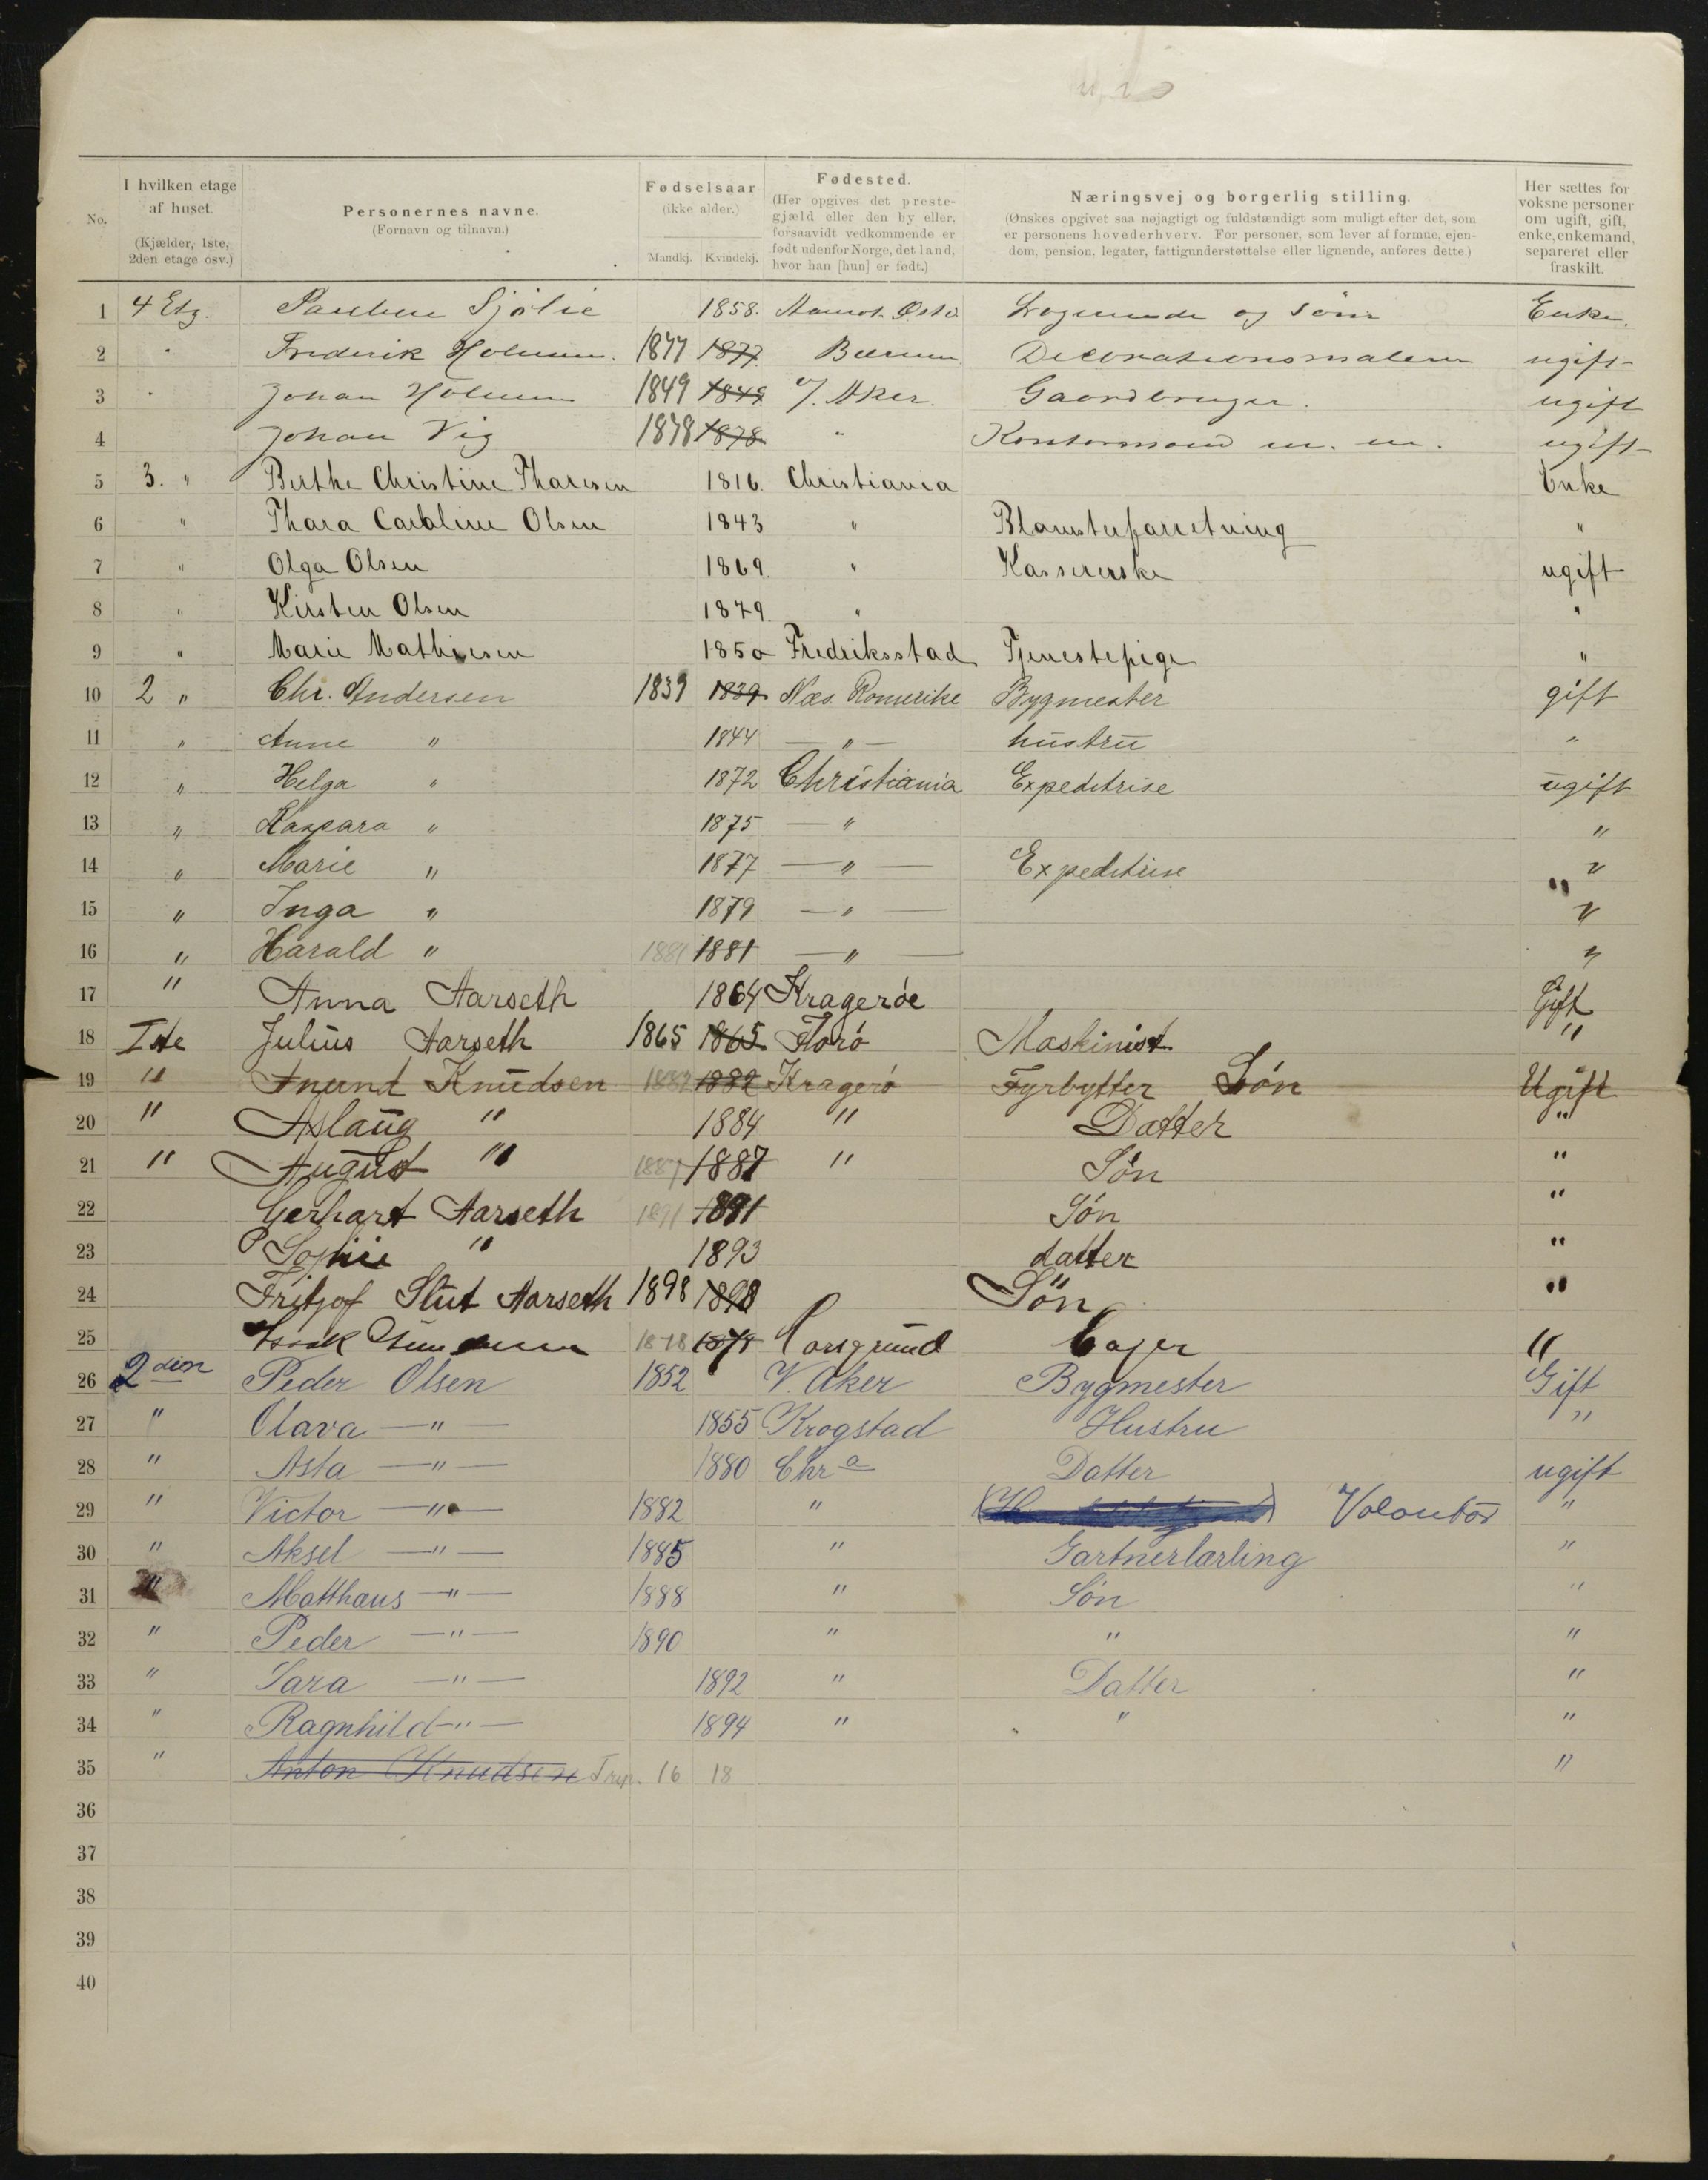 No. I hvilken etage af huset. (Kjælder, 1ste, 2den etage osv.) Personernes navne. (Fornavn og tilnavn.) Fødselsaar (ikke alder.) Mandkj. Kvindekj. Fødested. (Her opgives det prestegjæld eller den by eller, forsaavidt vedkommende er født udenfor Norge, det land, hvor han [hun] er født.) Næringsvej og borgerlig stilling. (Ønskes opgivet saa nøjagtigt og fuldstændigt som muligt efter det, som er personens hovederhverv. For personer, som lever af formue, ejendom, pension, legater, fattigunderstøttelse eller lignende, anføres dette.) Her sættes for voksne personer om ugift, gift, enke, enkemand, separeret eller fraskilt.
1 4 Etg. Sjölie 1858. og Enke.
2 " Frederik Holmen. 1877 1877 Bærum Decorationsmaler ugift
3 " Johan Holmen 1849 1849 V. Aker. Gaardbruger. ugift
4 Johan Vig 1878 1878 " Kontormand m. m. ugift
5 3. " Berthe Christine Tharesen 1816. Christiania Enke
6 " Thara Caroline Olsen 1843 " Blomsterforretning "
7 " Olga Olsen 1869. " Kassererske ugift
8 " Kirsten Olsen 1879. " "
9 " Marie Mathiesen 1850 Fredriksstad Tjenestepige "
10 2 " Chr. Andersen 1839 1839 Næs. Romerike Bygmester gift
11 " Anne " 1844 — " — hustru "
12 " Helga " 1872 Christiania Expeditrise ugift
13 " Kaspara " 1875 — " "
14 " Marie " 1877 — " — Expeditrise "
15 " Inga " 1879 — " — "
16 " Harald " 1881 1881 — " — "
17 " Anna Aarseth 1864 Kragerøe Gift
18 1ste Julius Aarseth 1865 1865 Florø Maskinist "
19 " Anund Knudsen 1882 1882 Kragerö Fyrbytter Søn Ugift
20 " Aslaug " 1884 " Datter "
21 " August " 1887 1887 " Søn "
22 Gerhart Aarseth 1891 1891 Søn "
23 Sophie " 1893 datter "
24 Fritjof Stut Aarseth 1898 1898 Søn "
25 Isak 1878 1878 Porsgrund "
26 2den Peder Olsen 1852 V. Aker Bygmester Gift
27 " Olava — " — 1855 Krogstad Hustru "
28 " Asta — " — 1880 Chra Datter ugift
29 " Victor — " — 1882 " Volontør "
30 " Aksel — " — 1885 " Gartnerlærling "
31 " Matthæus — " — 1888 " Søn "
32 " Peder — " — 1890 " " "
33 " Sara — " — 1892 " Datter "
34 " Ragnhild — " — 1894 " " "
35 " Anton Knudsen 16 18 "
36
37
38
39
40